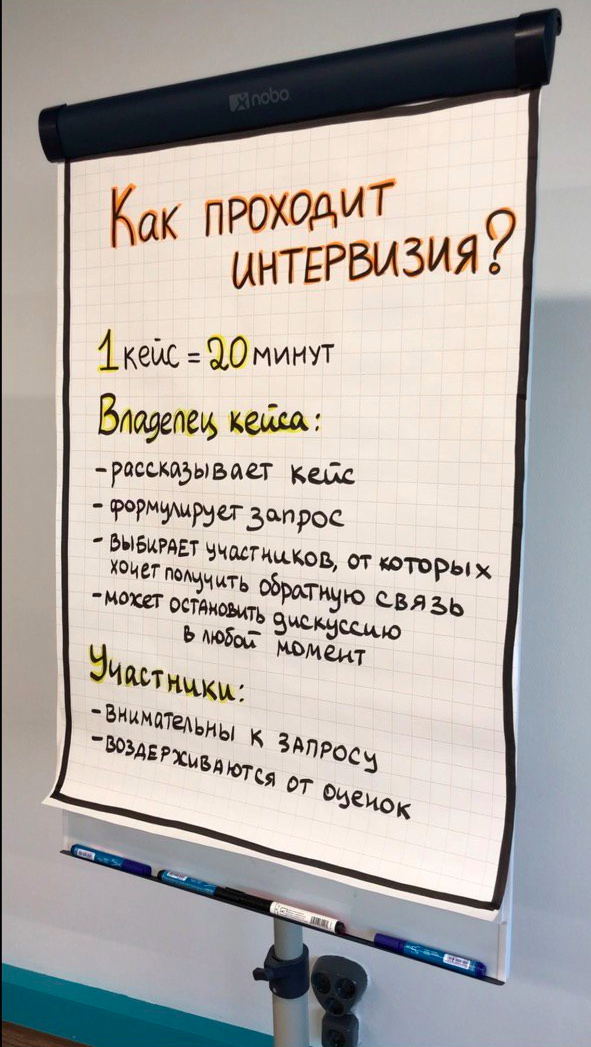 nobo
Как проходит
интервизия?
1 кейс = 20 минут
Владелец кейса:
- рассказывает кейс
- формулирует запрос
- выбирает участников, от которых
хочет получить обратную связь
- может остановить дискуссию
в любой момент
Участники:
- внимательны к запросу
- воздерживаются от оценок